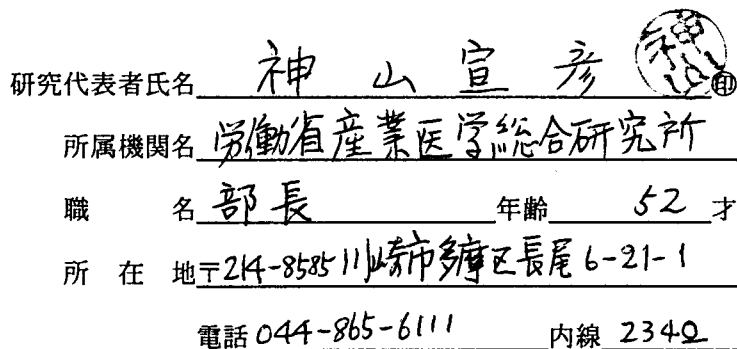 研究代表者氏名 神山宣彦 神山 印
所属機関名 労働省産業医学総合研究所
職名 部長 年齢 52 才
所在地 〒214-8585 川崎市多摩区長尾6-21-1
電話 044-865-6111 内線 2342